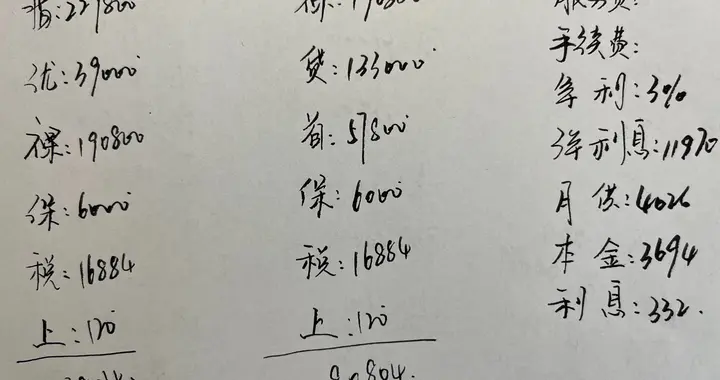 指:229800
优:39000
裸:190800
保:6000
税:16884
上:120
裸:190800
贷:133000
首:57800
保:6000
税:16884
上:120
80804.
服务费:
手续费:
年利:3%
3年利息:11970
月供:4026
本金:3694
利息:332.